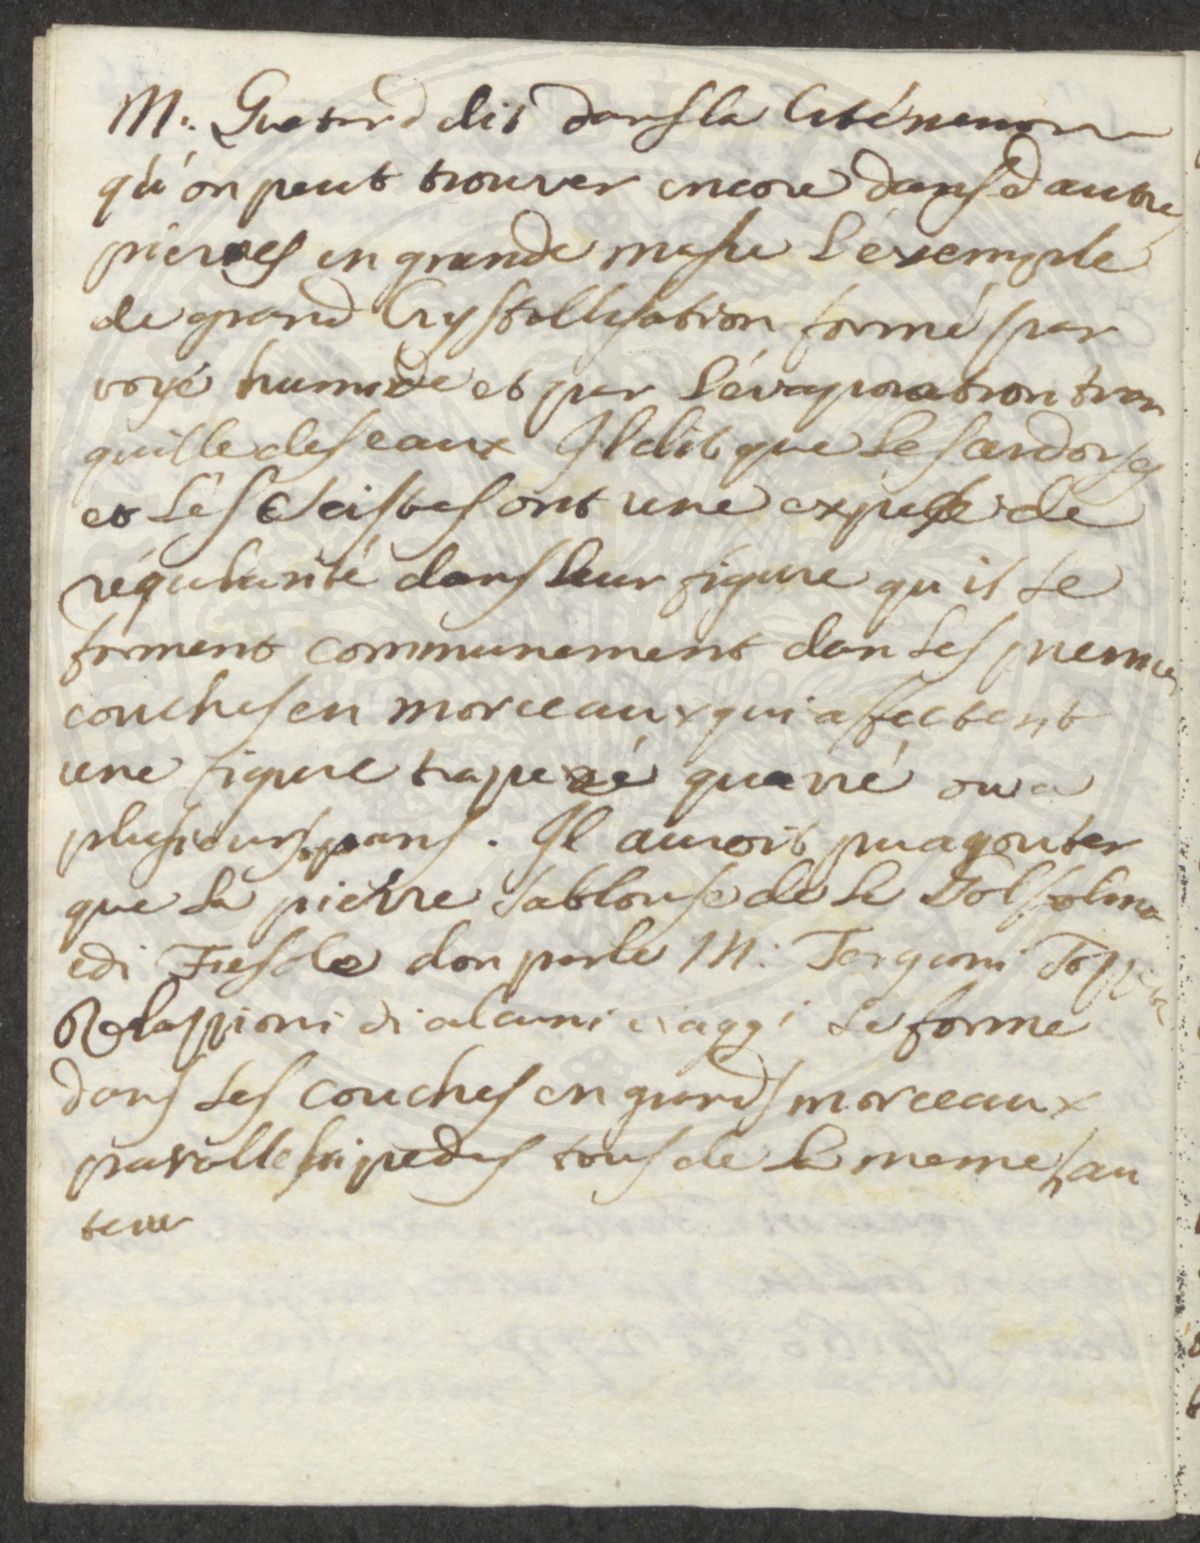 M. Guetard dit dans la Cité memoire
qu'on peut trouver encore dans d'autre
pierres en grande masse L'exemple
de grand Crystallisation formé par
voye humide et par L'évaporation tran
quille des eaux Il dit que Les ardoises
et Les Scistes ont une espese de
régularité dans leur figure qu'il se
forment communement dan Les premier
couches en morceaux qui affectent
une figure trapezé quarré ou a
plusieurs pans. Il auroit pu agouter
que La pierre sablouse de La Golfolina
e di Fiesole don parle M. Targioni Tozzi
Relazzioni di alcuni viaggi se forme
dans Les couches en grands morceaux
parallelipedes tous de La meme hau
teur